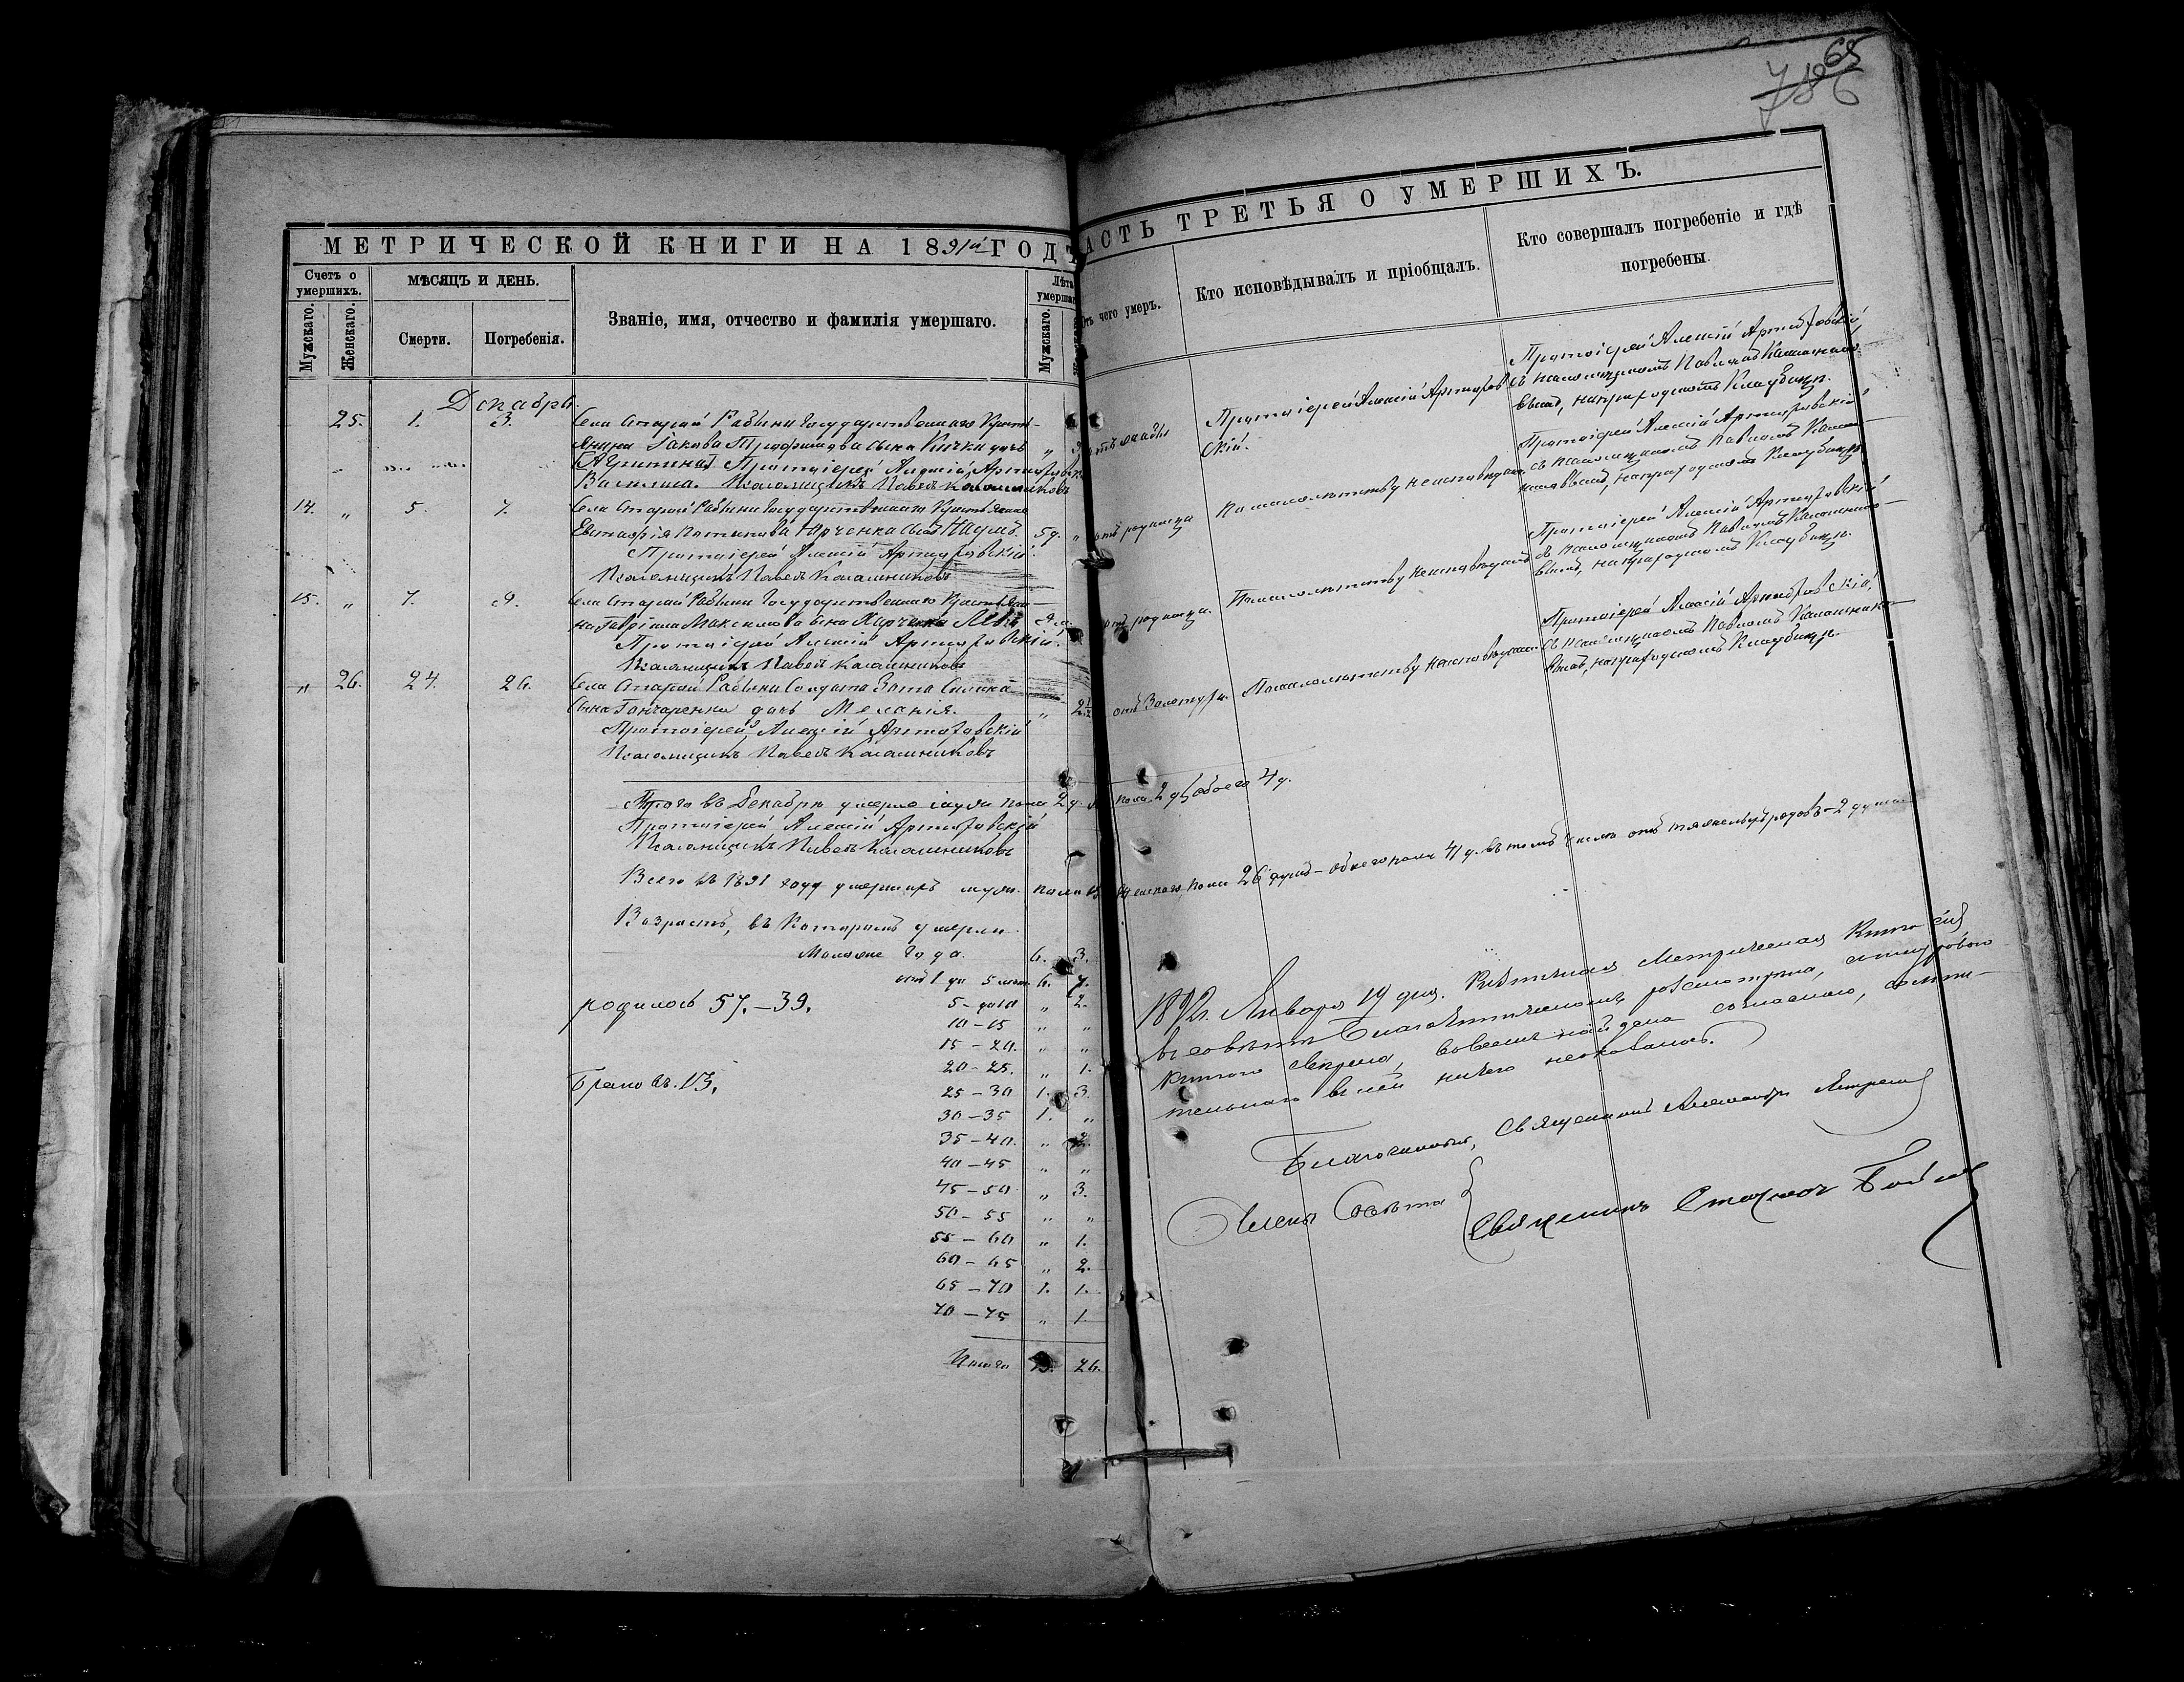 65
МЕТРИЧЕСКОЙ КНИГИ НА 1891й ГОДЪ
Счетъ о умершихъ.
МѢСЯЦЪ И ДЕНЬ.
Званіе, имя, отчество и фамилія умершаго.
Лѣта умершаго
Мужскаго.
Женскаго.
Смерти.
Погребенія.
Мужскаго.
Декабрь
25. 1. 3. Села Старой Рабыни Государственнаго Крестья-
янина Іакова Трофимова сына дочь „
Протоіерей Алексій
Псаломщикъ Павелъ Калашниковъ
14. „ 5. 7. Села Старой Рабыни Государственнаго Крестьянина
Юрченка сынъ Наумъ. 5 д. „
Протоіерей Алексій Артюховскій.
Псаломщикъ Павелъ Калашниковъ
15. „ 7. 9. Села Старой Рабыни Государственнаго Крестьяни-
на Гавріила Максимова сына Харченка
Протоіерей Алексій Артюховскій.
Псаломщикъ Павелъ Калашниковъ
„ 26. 24. 26. Села Старой Рабыни Солдата
сына Гончаренка дочь Меланія. „ 2½
Протоіерей Алексій Артюховскій
Псаломщикъ Павелъ Калашниковъ
Итого въ Декабрѣ умерло муж. пола 2 д.
Протоіерей Алексій Артюховскій
Псаломщикъ Павелъ Калашниковъ
Всего въ 1891 году умершихъ муж. пола
Возрастъ, въ которомъ умерли
Моложе года. 6. 3.
отъ 1 до 5 лѣтъ 6. 7.
родилось 57.–39. 5 – до 10 „ 2.
10 – 15 „ „
15 – 20. „ „
20 – 25. „ 1.
Браковъ. 13.
25 – 30 1. 3.
30 – 35 1. „
35 – 40. „ 2.
40 – 45 „ „
45 – 50 „ 3.
50 – 55 „ „
55 – 60 „ 1.
60 – 65 „ 2.
65 – 70 1. 1.
70 – 75 „ 1.
Итого 15. 26.
АСТЬ ТРЕТЬЯ О УМЕРШИХЪ.
чего умеръ.
Кто исповѣдывалъ и пріобщалъ.
Кто совершалъ погребеніе и гдѣ погребены.
Протоіерей Алексій Артюхов-
скій.
Протоіерей Алексій Артюховскій
съ псаломщикомъ Павломъ Калашнико-
вымъ, на приходскомъ кладбищѣ.
отъ родимца
По малолѣтству не исповѣданъ
Протоіерей Алексій Артюховскій
съ псаломщикомъ Павломъ Калаш-
никовымъ, на приходскомъ кладбищѣ
отъ родимца.
По малолѣтству не исповѣданъ
Протоіерей Алексій Артюховскій
съ псаломщикомъ Павломъ Калашнико-
вымъ, на приходскомъ кладбищѣ.
отъ золотухи.
По малолѣтству не исповѣдана.
Протоіерей Алексій Артюховскій,
съ псаломщикомъ Павломъ Калашнико-
вымъ, на приходскомъ кладбищѣ.
пола 2 д. обоего 4 д.
женскаго пола 26 душъ – обоего пола 41 д. въ томъ числѣ отъ родовъ – 2 души
1892 г. Января 19 дня. Метрическая книга сія
въ совѣтѣ Благочинническомъ разсмотрѣна, съ
книгою свѣрена, во всемъ найдена согласною, сомни-
тельнаго въ ней ничего не оказалось.
Благочинный, Священникъ Александръ
Члены Совѣта { Священникъ